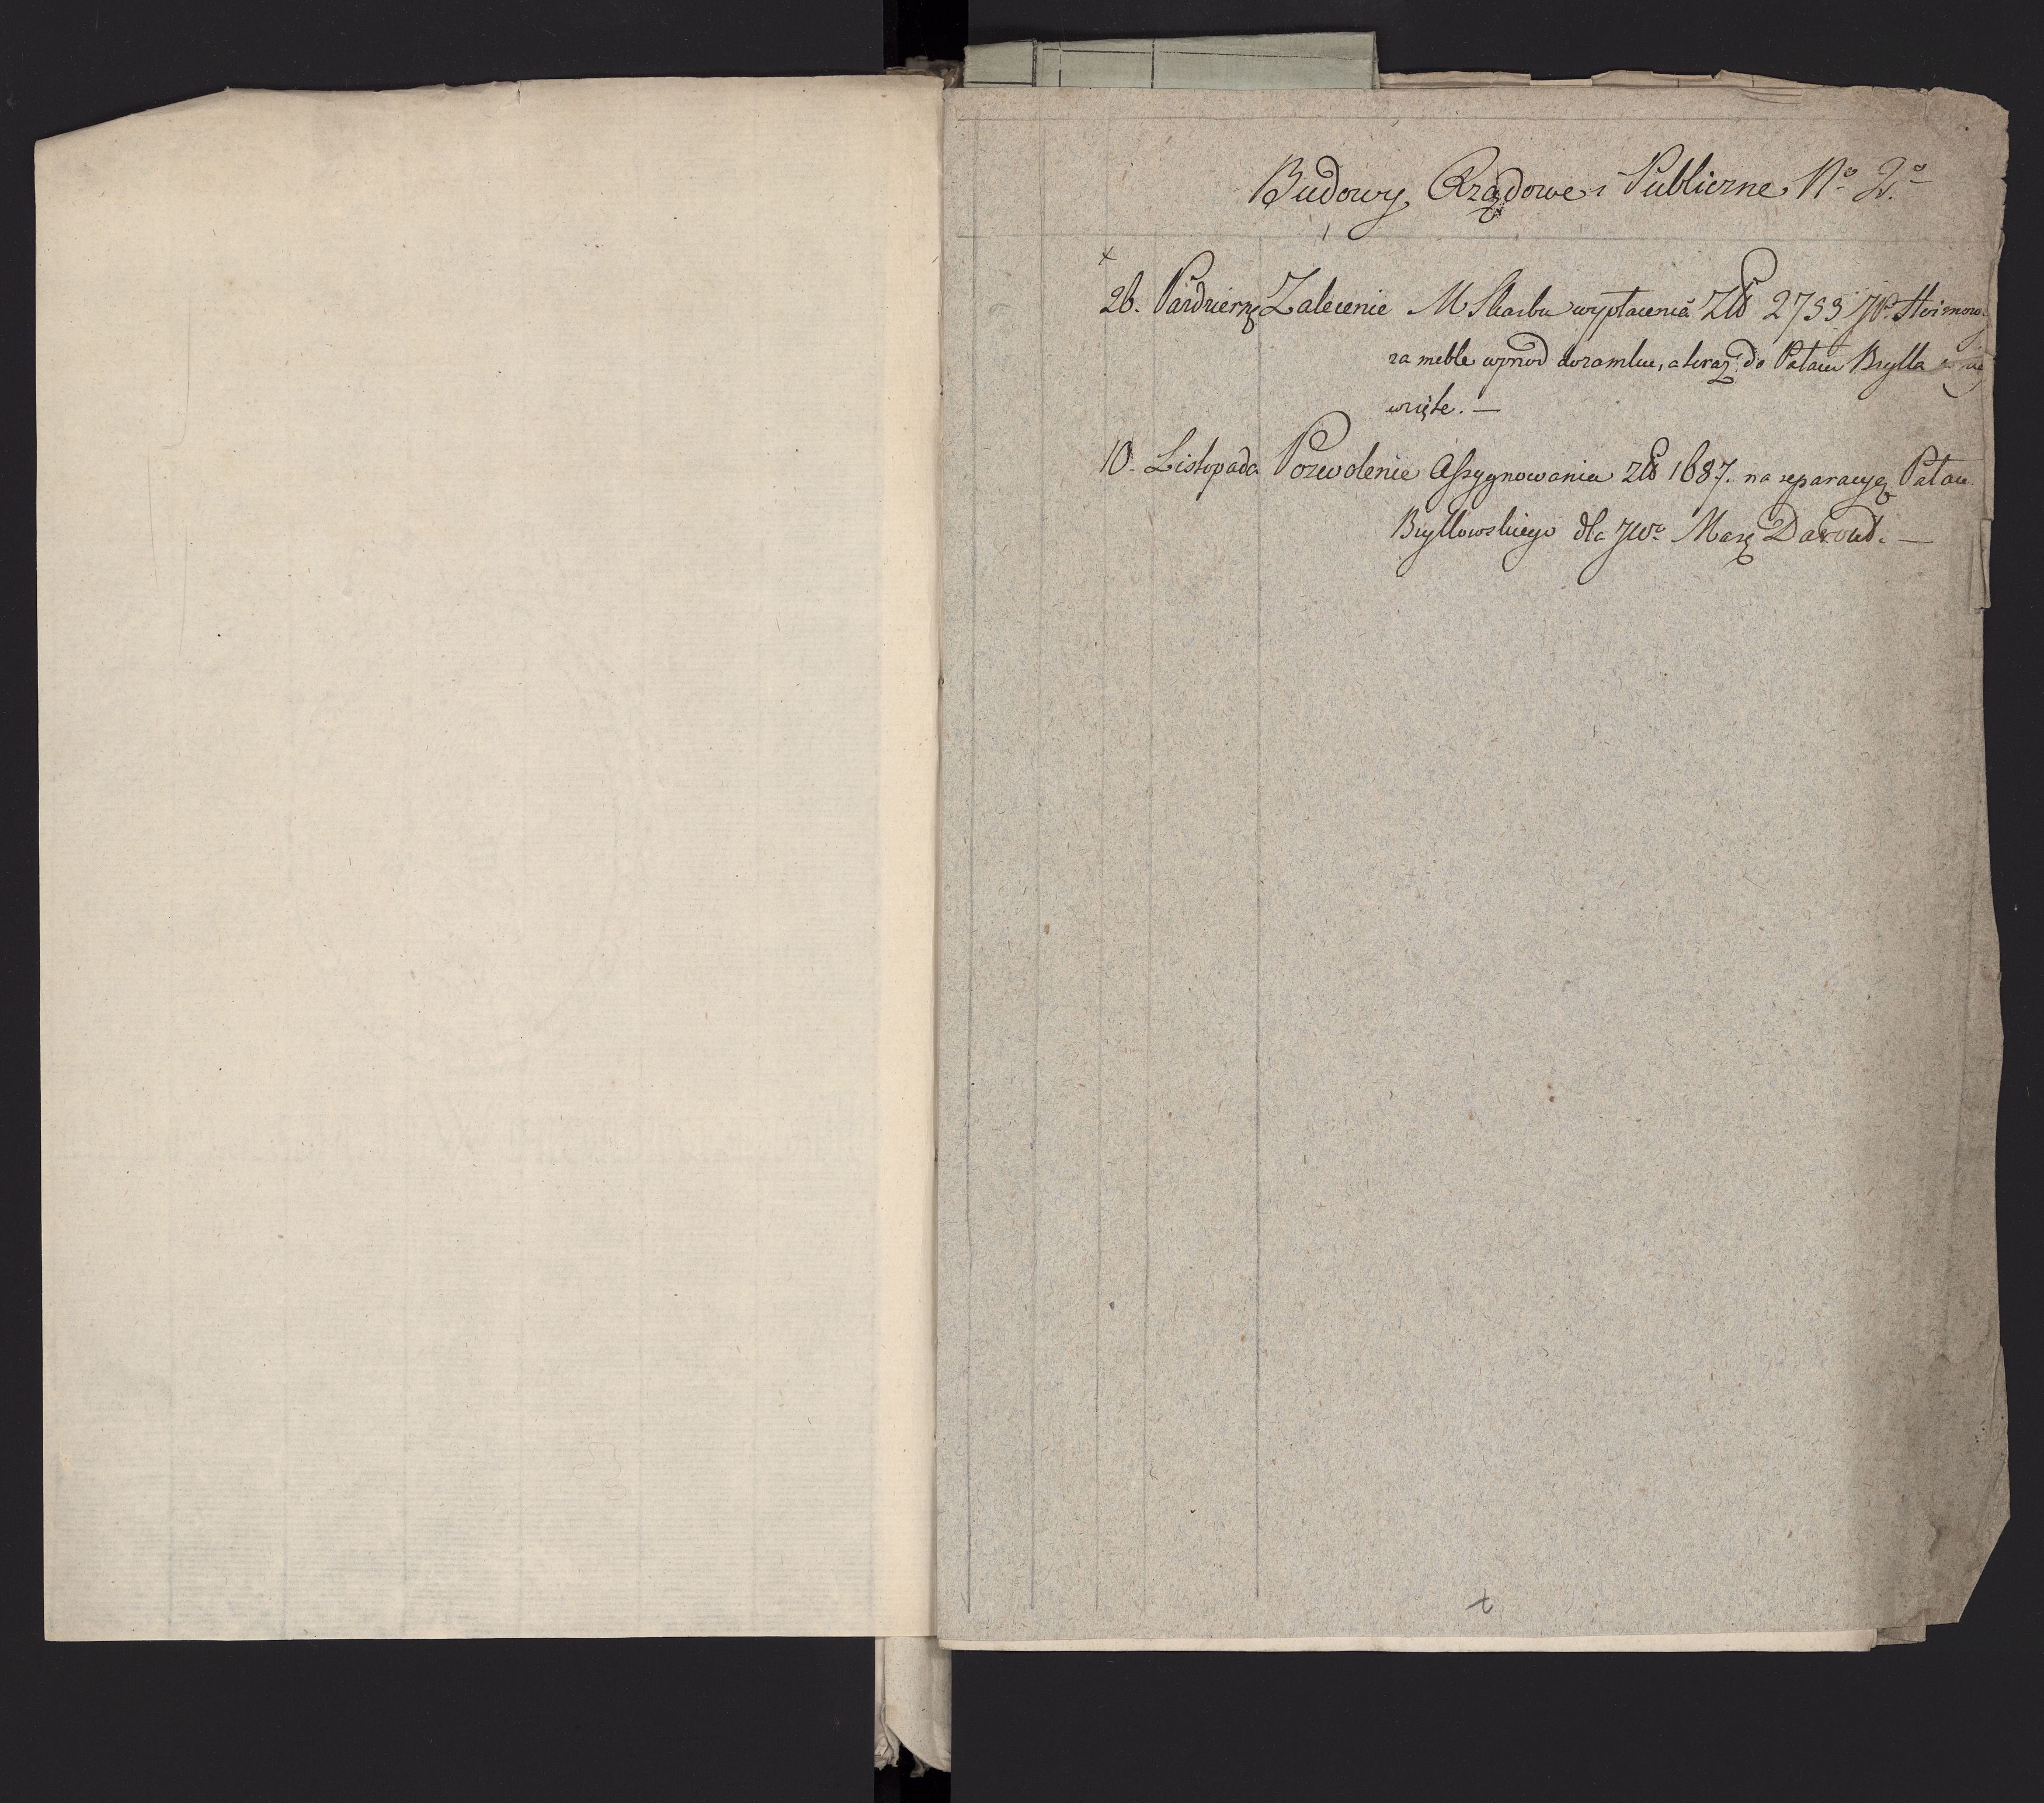 Budowy Rządowe i Publiczne Nº 2º
26. Październ Zalecenie M Skarbu wypłacenia Złł 2753 JP.
za meble wprzod do zamku, a teraz do Pałacu Brylla
wzięte. —
10. Listopada Pozwolenie Assygnowania złł 1687. na reparacyę Pałacu
Bryllowskiego dla JWº Marſ Davoust. —